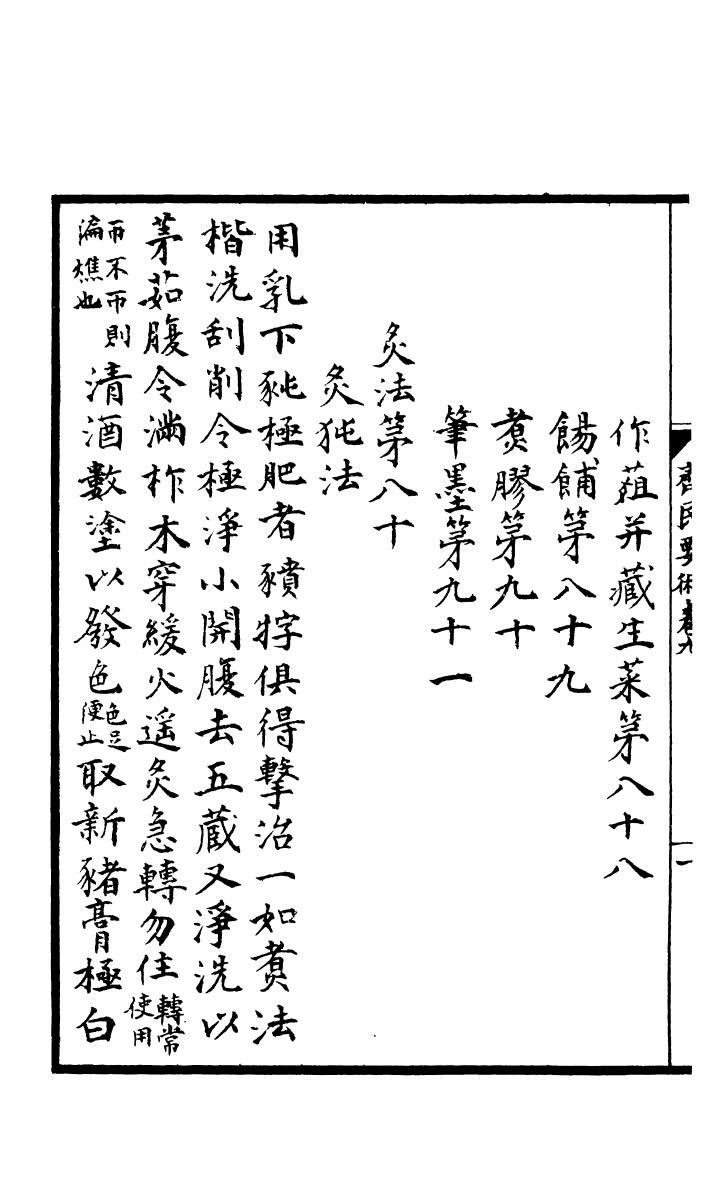 齊民要術卷九
一
作菹并藏生菜第八十八
餳餔第八十九
煑膠第九十
筆墨第九十一
炙法第八十
炙㹠法
用乳下豘極肥者豶牸俱得擊治一如煑法
楷洗刮削令極淨小開腹去五藏又淨洗以
茅茹腹令滿柞木穿緩火遥炙急轉勿住轉常使用
而不帀則
徧燋也
清酒數塗以發色色足便止取新豬膏極白